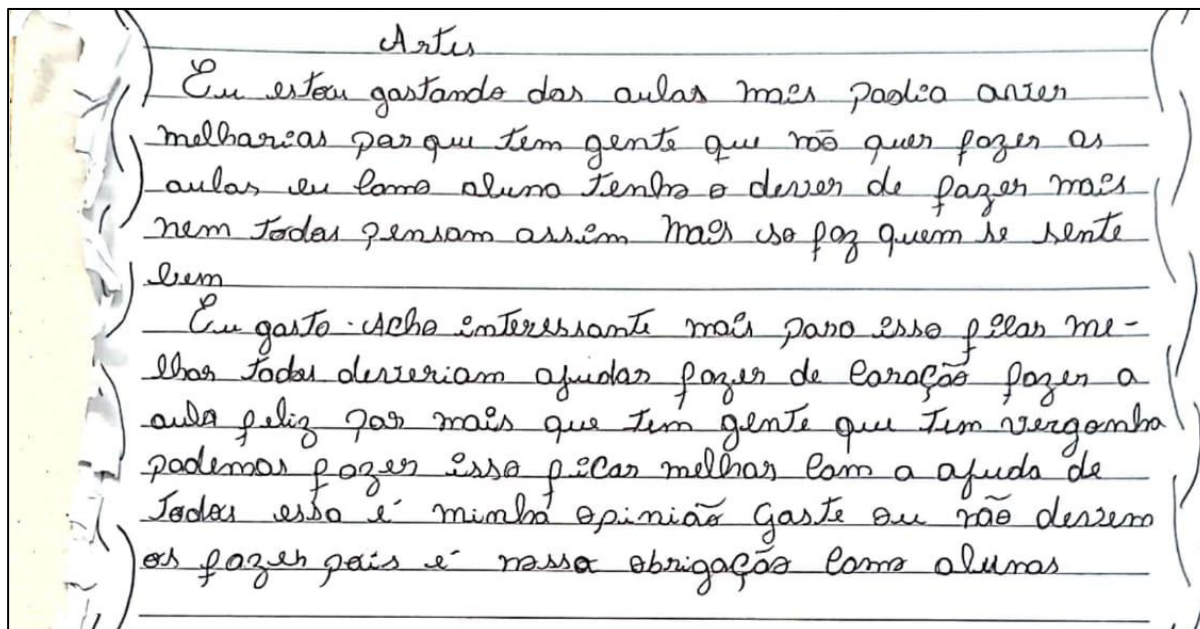 Artes
Eu estou gostando das aulas mais podia aver
melhorias por que tem gente que não quer fazer as
aulas eu como aluno tenho o dever de fazer mais
nem todos pensam assim mais so faz quem se sente
bem
Eu gosto. Acho interessante mais para isso ficar me-
lhor todos deveriam ajudar fazer de coração fazer a
aula feliz por mais que tem gente que tem vergonha
podemos fazer isso ficar melhor com a ajuda de
todos essa é minha opinião goste ou não devem
os fazer pois é nossa obrigação como alunos